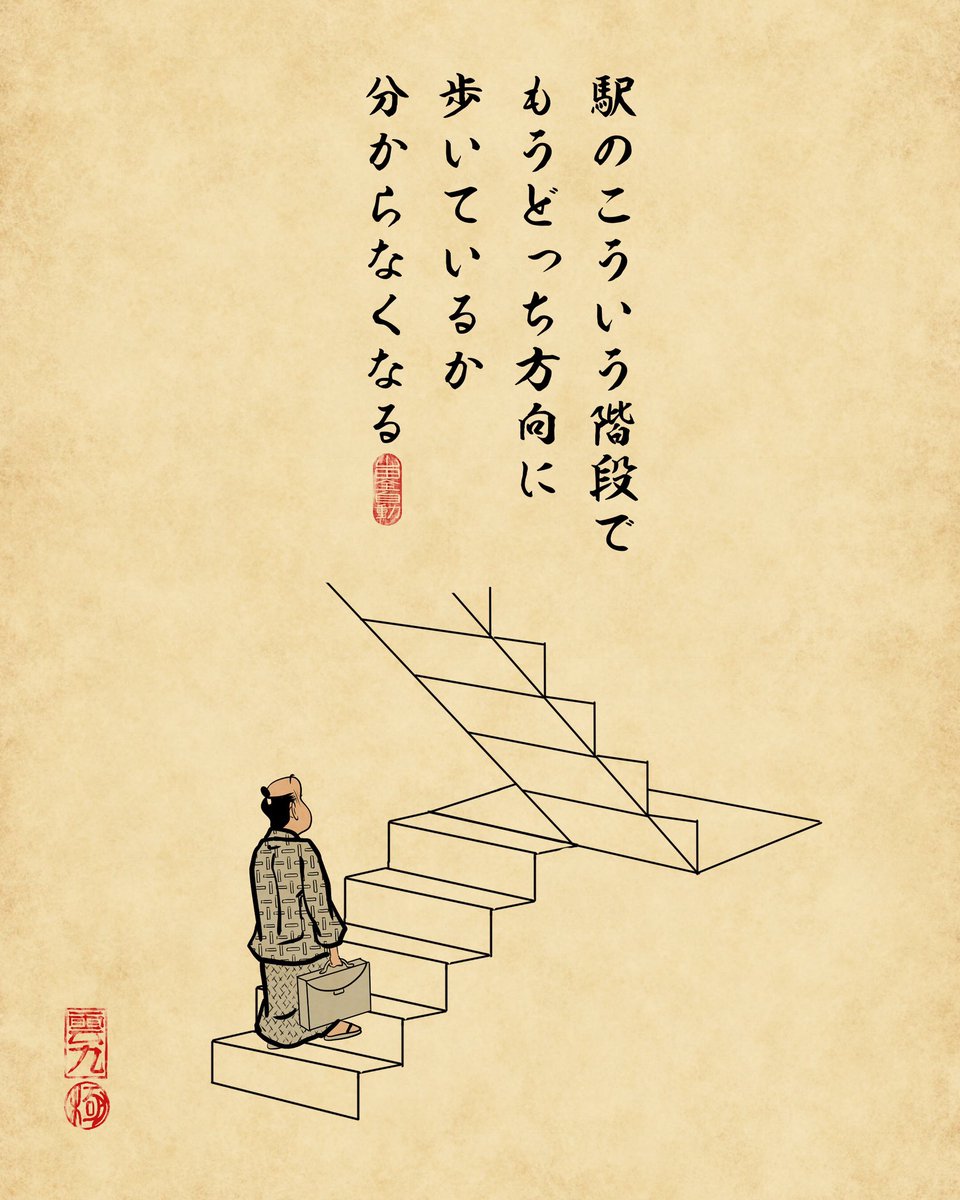 駅のこういう階段で
もうどっち方向に
歩いているか
分からなくなる
雲九
極